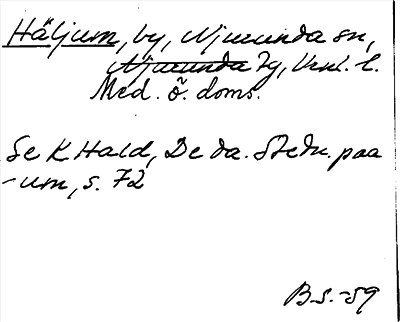 Häljum, by, Njurunda sn,
Njurunda tg, Vnl. l.
Med. ö. doms.
Se K Hald, De da. Stedn. paa
-um, s. 72
B.S.-59